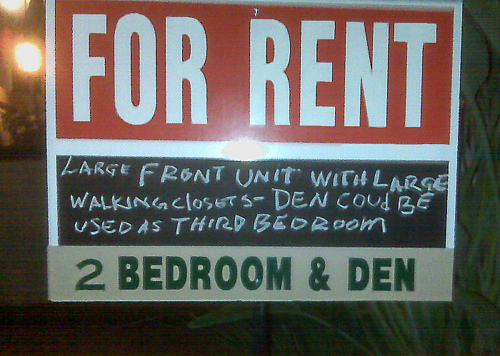 FOR RENT
LARGE FRONT UNIT WITH LARGE
WALKING CLOSETS- DEN COUd BE
USED AS THIRD BEDROOM
2 BEDROOM & DEN